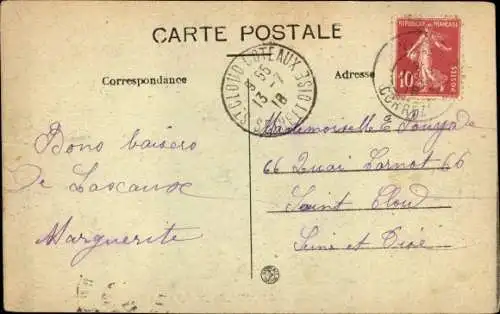 CARTE POSTALE
Correspondance
Adresse
ST CLOUD COTEAUX
8 55
13 - 7
18
SNE ET OISE
RÉPUBLIQUE FRANÇAISE
10c
POSTES
CORRÈZE
Bons baisers
De Lascaux
Marguerite
Mademoiselle
66 Quai Carnot 66
Saint Cloud
Seine et Oise